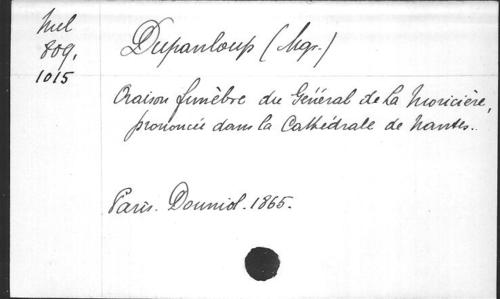 Mel
809,
1015
Dupanloup (Mgr.)
Oraison funèbre du Général de La Moricière,
prononcée dans la Cathédrale de Nantes.
Paris. Douniol. 1865.